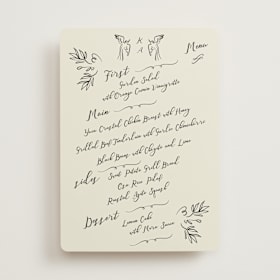 K
A
Menu
First
Garden Salad
with Orange Cumin Vinaigrette
Main
Yuca Crusted Chicken Breast with Honey
Grilled Beef Tenderloin with Garlic Chimichurri
Black Beans with Chayote and Lime
Sides
Sweet Potato Grill Bread
Coco Rice Pilaf
Roasted Spite Squash
Dessert
Lemon Cake
with Mora Sauce